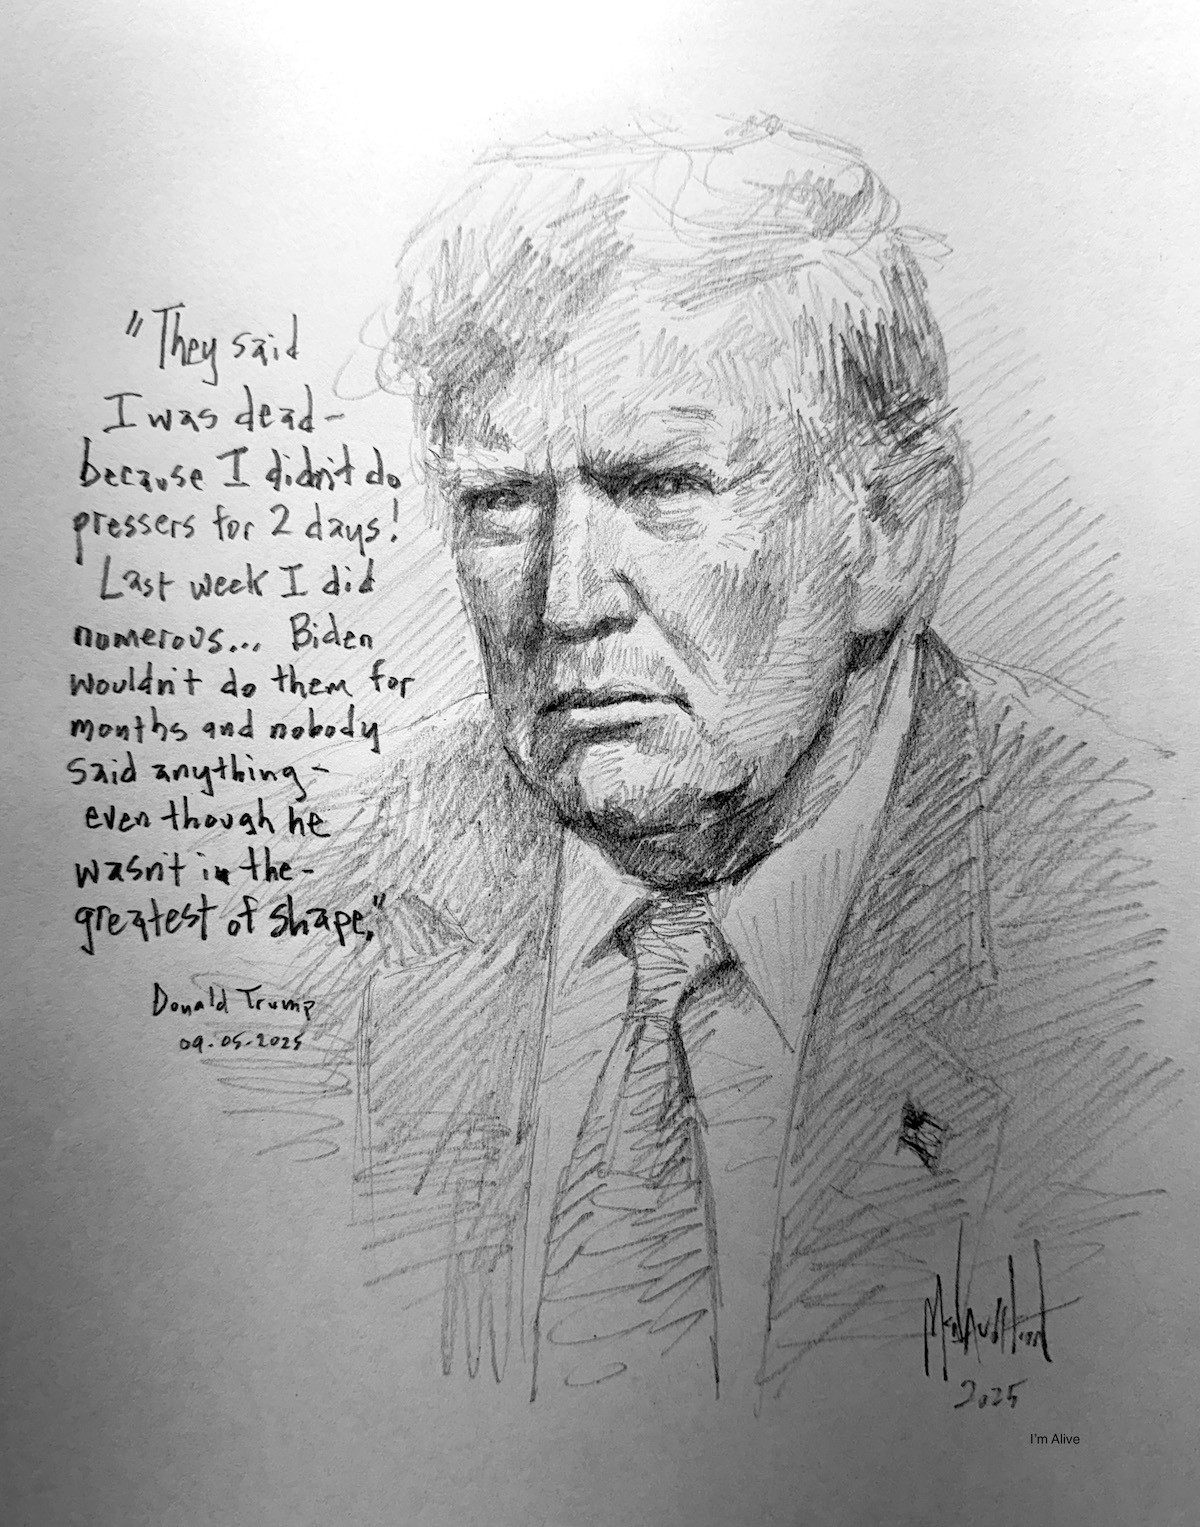 "They said
I was dead-
because I didn't do
pressers for 2 days!
Last week I did
numerous... Biden
wouldn't do them for
months and nobody
said anything-
even though he
wasn't in the-
greatest of shape."
Donald Trump
09.05.2025
2025
I'm Alive